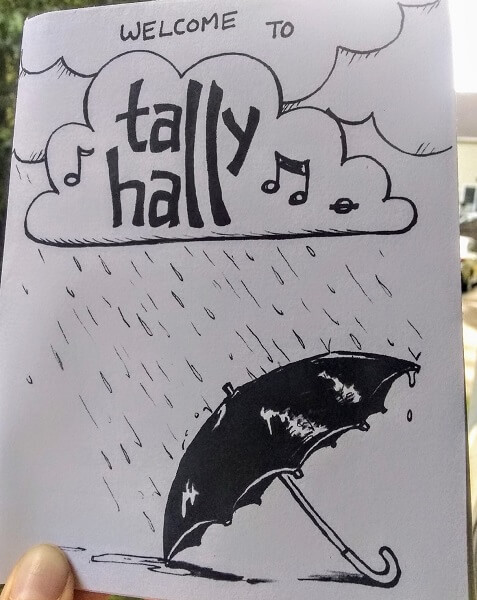 WELCOME TO
tally
hall